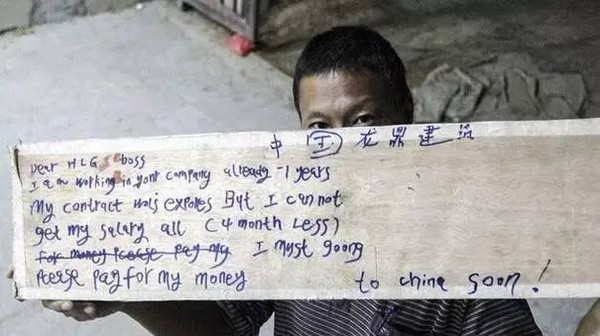 中工龙鼎建筑
Dear HLG boss
I am working in yont company already 1 years
My contract wois expores But I can not
get my salary all (4 month Less)
for money Pcerse pay my I myst goong
Pcerse pay for my money to china soon!